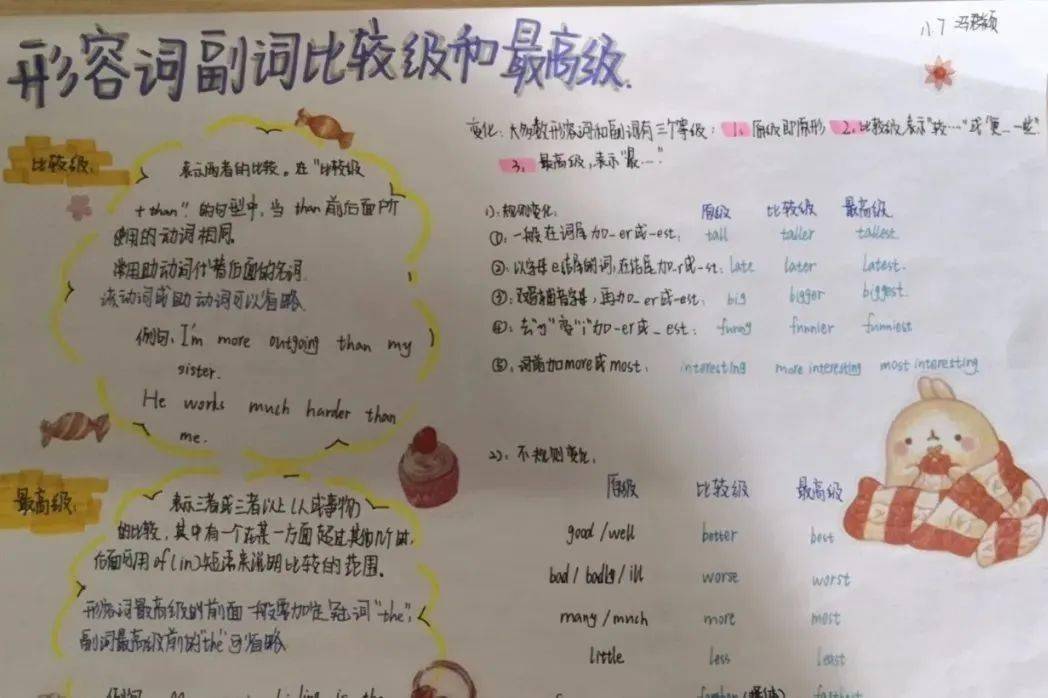 形容词副词比较级和最高级.
八7
变化:大多数形容词和副词有三个等级: 1、原级即原形 2、比较级,表示"较…"或"更…一些"
3、最高级,表示"最…".
比较级:
表示两者的比较。在"比较级
+ than"的句型中,当 than 前后面所
使用的动词相同。
常用助动词代替后面的名词.
该动词或助动词可以省略.
例句, I'm more outgoing than my
sister.
He works much harder than
me.
最高级:
表示三者或三者以上(人或事物)
的比较,其中有一个在某一方面超过其他几个时,
后面可用of(in)短语来说明比较的范围。
形容词最高级的前面一般要加定冠词"the",
副词最高级前的"the"可省略
例句: is the
1): 规则变化: 原级 比较级 最高级
①: 一般在词尾加-er或-est: tall taller tallest
②: 以字母e结尾的词,在结尾加-r或-st: late later latest.
③: 双写辅音字母,再加_er或-est: big bigger biggest.
④: 去"y"变"i"加-er或_est: funny funnier funniest
⑤: 词前加more或most: interesting more interesting most interesting
2): 不规则变化.
原级 比较级 最高级
good / well better best
bad / badly / ill worse worst
many / much more most
little less least